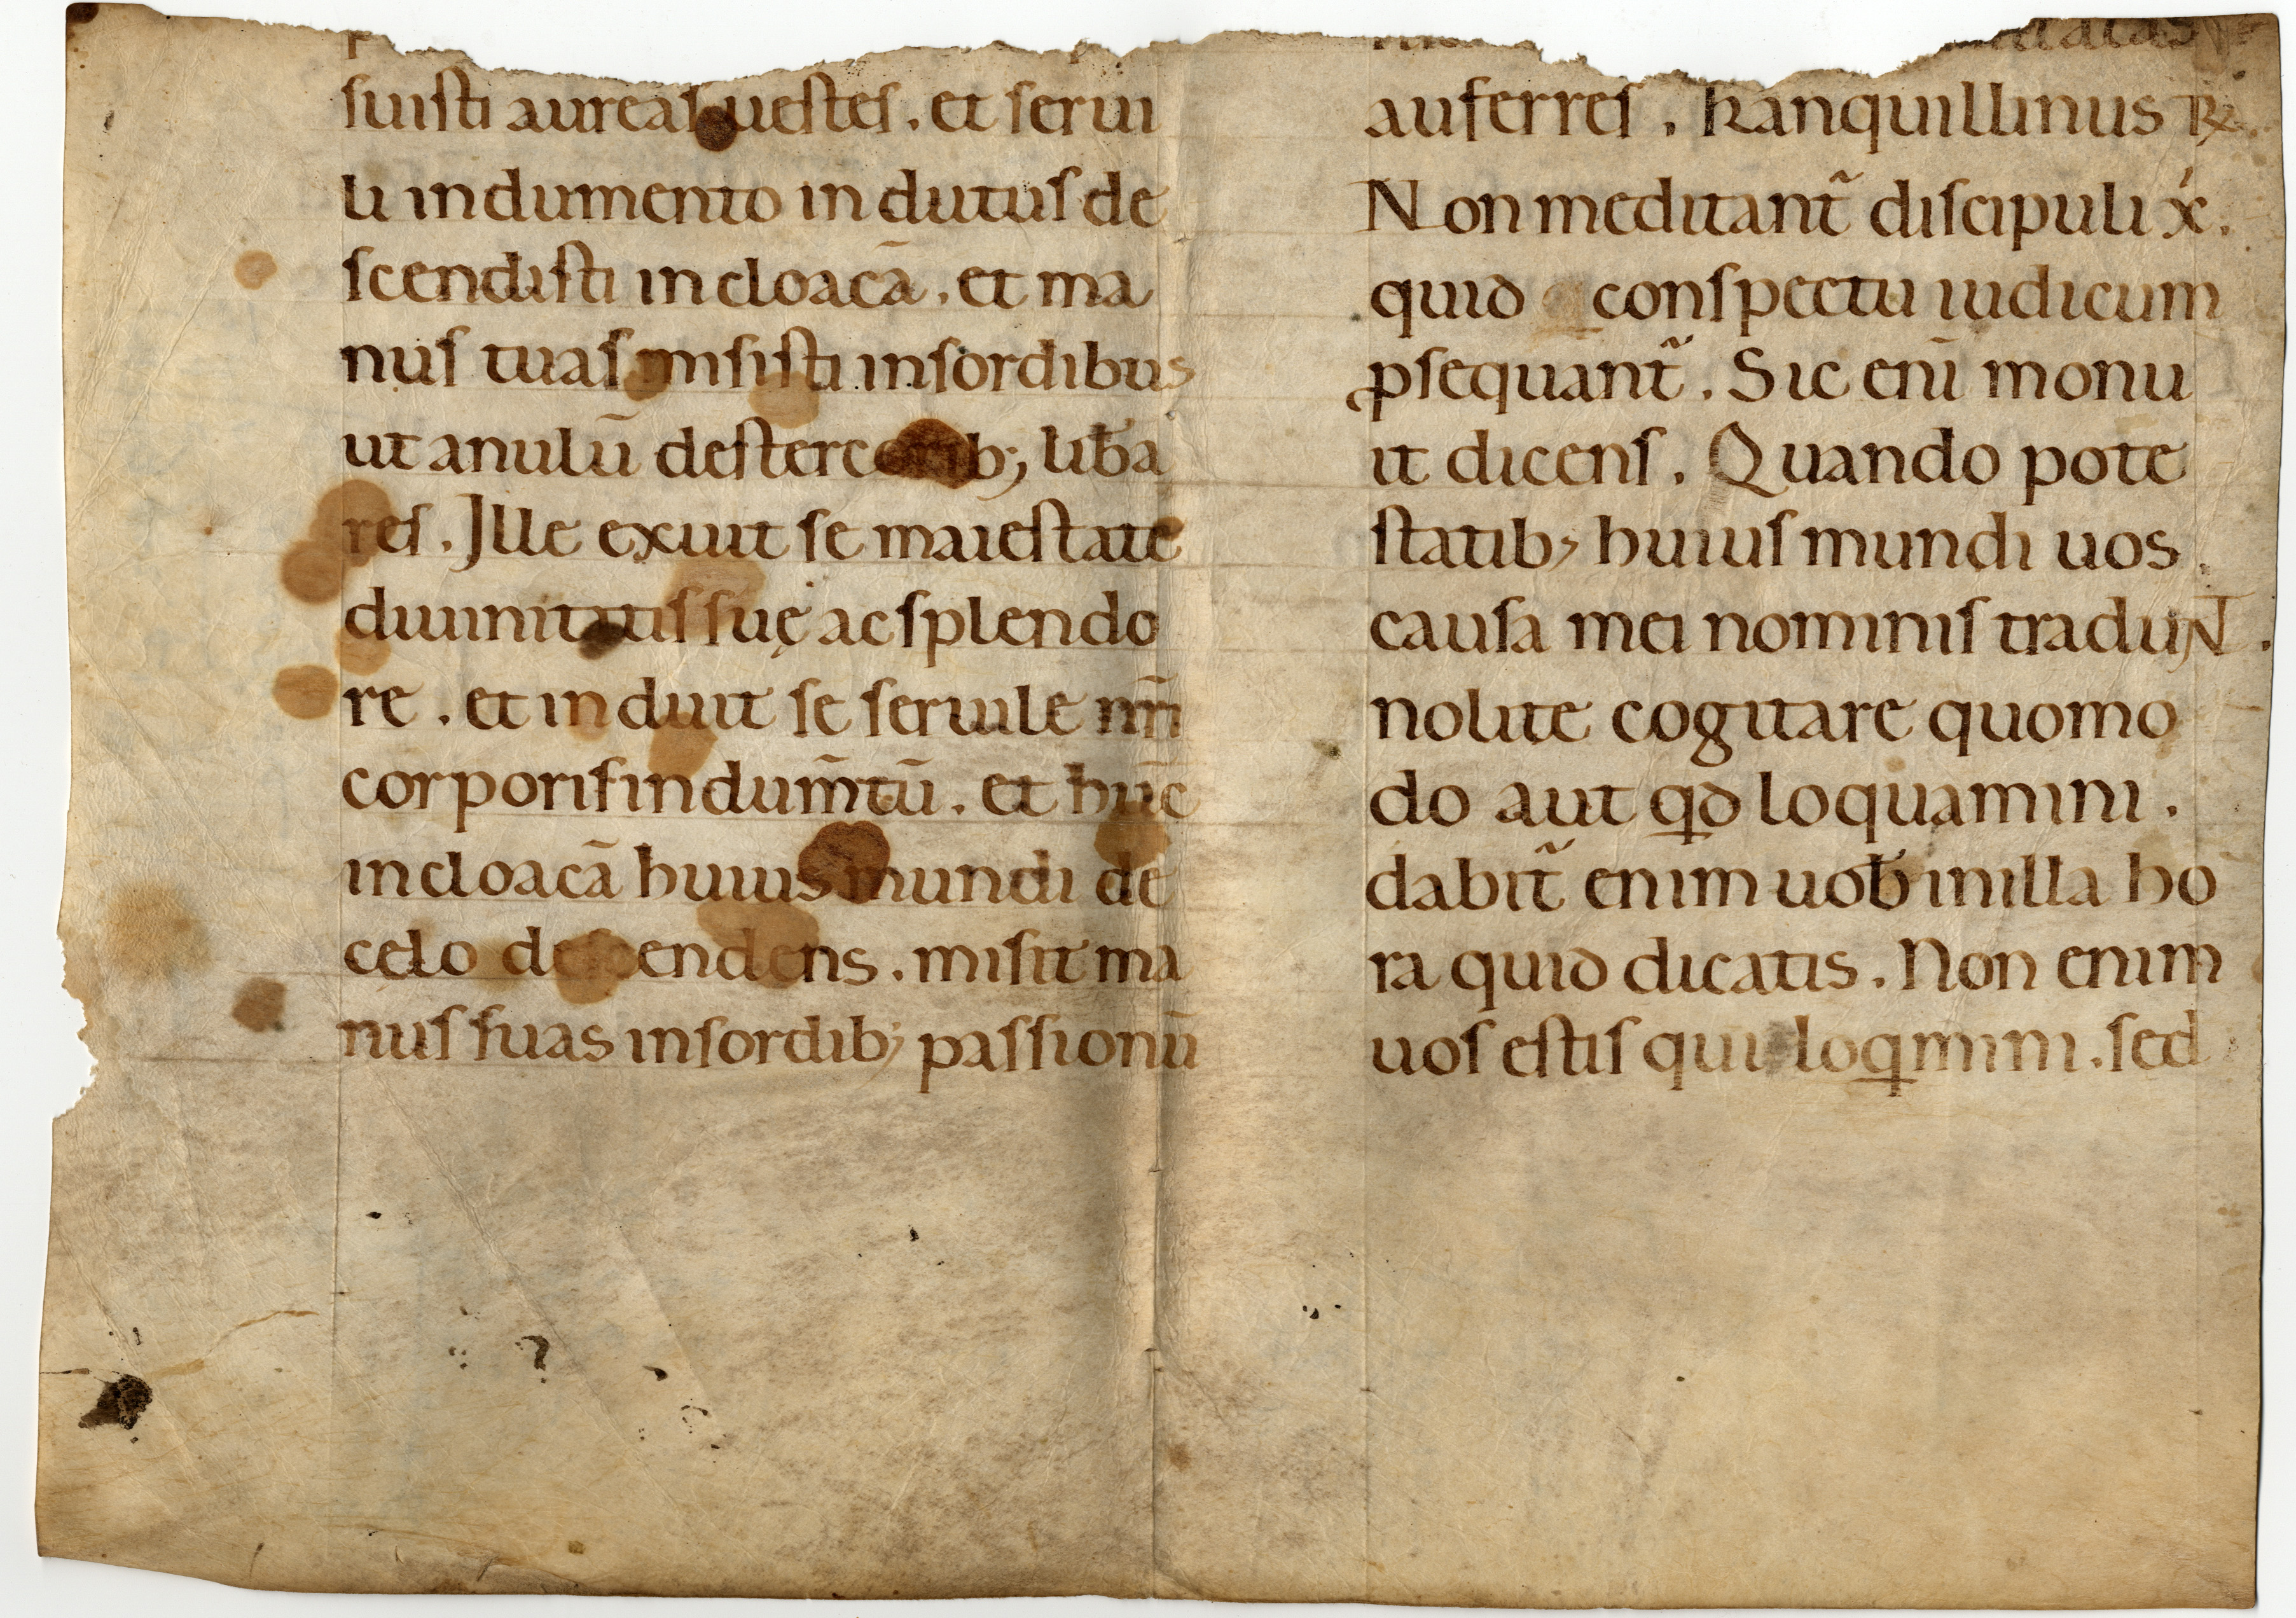 suisti aureas uestes. et serui
li indumento indutus de
scendisti in cloacā. et ma
nus tuas misisti insordibus
ut anulū destercorib; lib̄a
res. Ille exuit se maiestate
diuinitatis suę ac splendo
re. et induit se seruile nr̄i
corporis indum̄tū. et hūc
incloacā huius mundi de
celo descendens. misit ma
nus suas insordib; passionū
auferres. Tranquillinus R̷.
Non meditant̃ discipuli x̓.
quid conspectu iudicum
ꝓsequant̃. Sic eni̅ monu
it dicens. Quando pote
statib; huius mundi uos
causa mei nominis traduNT.
nolite cogitare quomo
do aut qđ loquamini.
dabit̃ enim uob̅ inilla ho
ra quid dicatis. Non enim
uos estis qui loqmini. sed